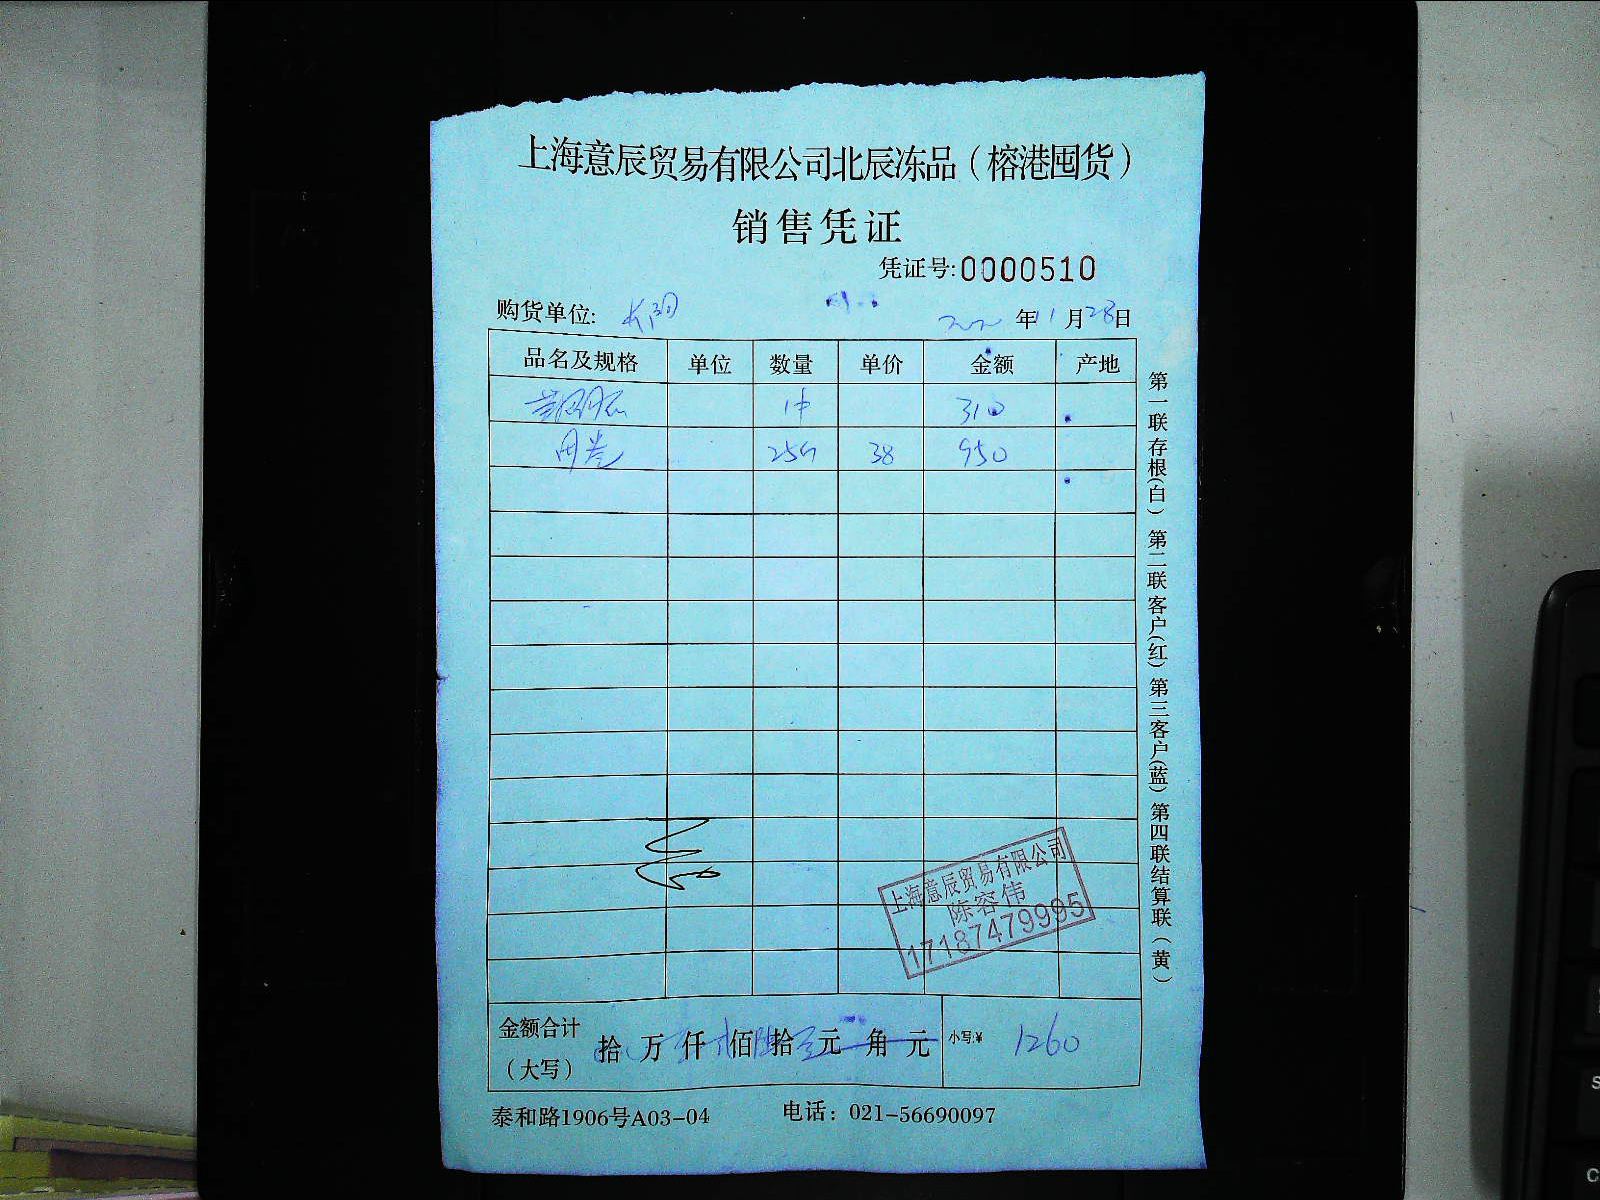 上海意辰贸易有限公司北辰冻品（榕港囤货）
销售凭证
凭证号:0000510
购货单位:
年11月28日
品名及规格 单位 数量 单价 金额 产地
1件 310
25 38 950
上海意辰贸易有限公司
陈容伟
17187479995
金额合计（大写） 拾 万 仟 佰 拾 元 角 元 小写:¥ 1260
泰和路1906号A03-04 电话：021-56690097
第一联存根（白）第二联客户（红）第三客户（蓝）第四联结算联（黄）